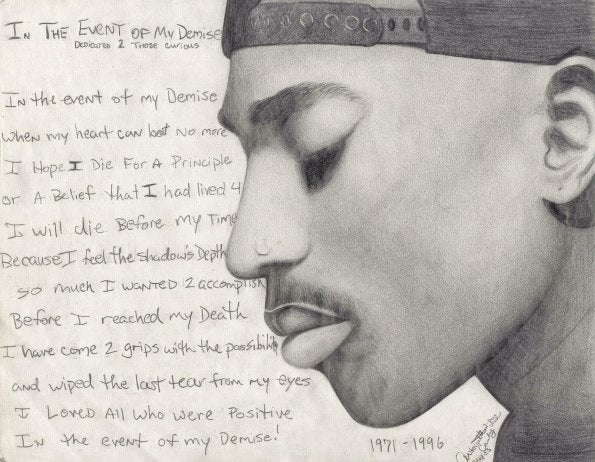 In The Event of My Demise
Dedicated 2 Those Curious
In the event of my Demise
when my heart can beat no more
I Hope I Die For A Principle
or A Belief that I had lived 4
I will die Before my Time
Because I feel the shadow's Depth
so much I wanted 2 accomplish
Before I reached my Death
I have come 2 grips with the possibility
and wiped the last tear from my eyes
I Loved All who were Positive
In the event of my Demise!
1971-1996